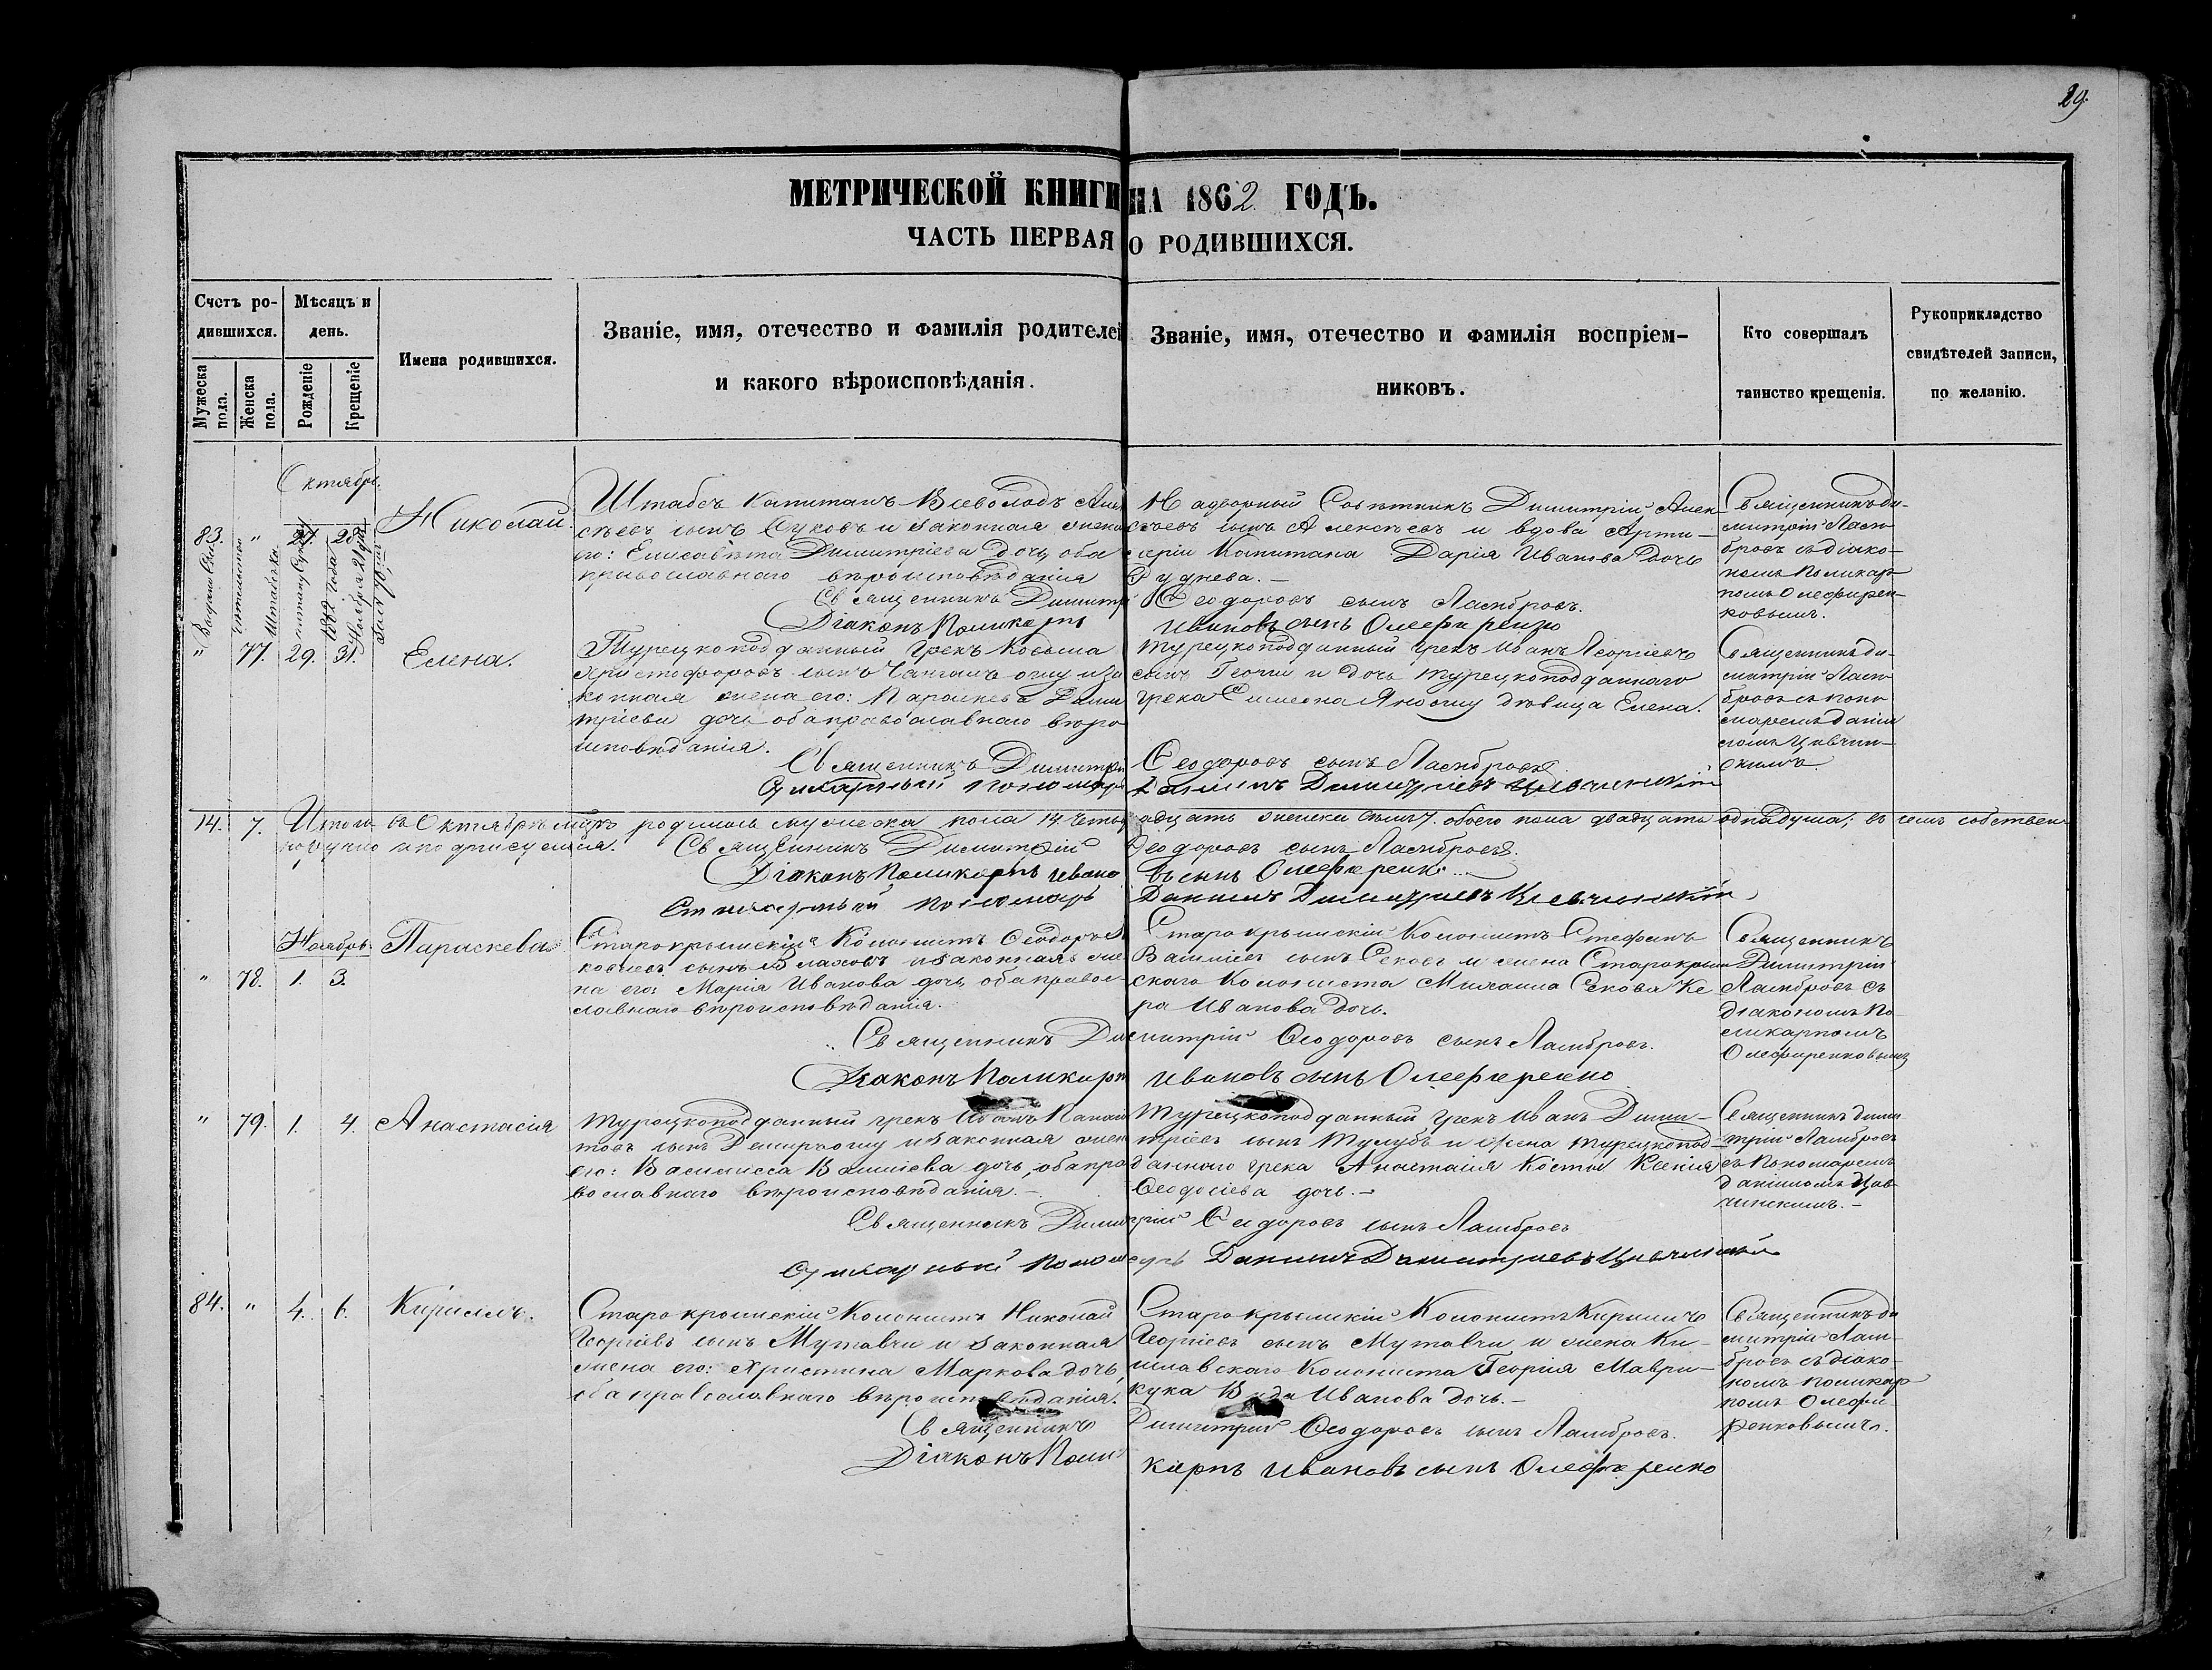 29.
МЕТРИЧЕСКОЙ КНИГИ НА 1862 ГОДЪ.
ЧАСТЬ ПЕРВАЯ О РОДИВШИХСЯ.
Счетъ ро-
дившихся.
Мужеска
пола.
Женска
пола.
Мѣсяцъ и
день.
Рожденіе
Крещеніе
Имена родившихся.
Званіе, имя, отечество и фамилія родителей
и какого вѣроисповѣданія.
Званіе, имя, отечество и фамилія воспріем-
никовъ.
Кто совершалъ
таинство крещенія.
Рукоприкладство
свидѣтелей записи,
по желанію.
Октябрь.
83. " 27. 28. Николай.
Штабсъ Капитанъ Всеволодъ Алек
сѣевъ сынъ и законная жена
его: Елисавета Димитріева дочь, оба
православнаго вѣроисповѣданія
Священникъ Димитрі
Діаконъ Поликарпъ
Надворный Совѣтникъ Димитрій Алек
сѣевъ сынъ Алексѣевъ и вдова Арти-
леріи Капитана Дарія Иванова дочь
Руднева.-
Ѳеодоровъ сынъ Ламбровъ.
Ивановъ сынъ Олефиренко
Священникъ Ди-
митрій Лам-
бровъ съ діако-
номъ Поликар-
помъ Олефирен-
ковымъ.
" 77. 29. 31. Елена.
Турецкоподданный грекъ Косьма
Христофоровъ сынъ и за
конная жена его: Параскева Дими
тріева дочь оба православнаго вѣро
исповѣданія.
Священникъ Димитрій
Стихарный Пономарь
Турецкоподданный грекъ Иванъ Георгіевъ
сынъ и дочь турецкоподданнаго
грека Симеона дѣвица Елена.
Ѳеодоровъ сынъ Ламбровъ
Даніилъ Димитріевъ Цивчинскій
Священникъ Ди-
митрій Лам-
бровъ съ поно-
маремъ Дани
ломъ Цивчин-
скимъ.
14. 7. Итого въ Октябрѣ мцѣ родилось мужеска пола 14. четыр надцать женска семь 7. обоего пола двадцать одна душа; въ чемъ собствен
норучно и подписуемся. Священникъ Димитрій Ѳеодоровъ сынъ Ламбровъ.
Діаконъ Поликарпъ Ивано въ сынъ Олефиренко
Стихарный Пономарь Даніилъ Димитріевъ Цивчинскій
Ноябрь.
" 78. 1. 3. Параскева
Старокрымскій Колонистъ Ѳеодоръ
сынъ Влаховъ и законная же
на его: Марія Иванова дочь, оба право
славнаго вѣроисповѣданія.
Старокрымскій Колонистъ Стефанъ
Василіевъ сынъ Сековъ и жена Старокрым
скаго Колониста Михаила Секова Ке
ра Иванова дочь.
Священникъ Димитрій Ѳеодоровъ сынъ Ламбровъ.
Діаконъ Поликарпъ Ивановъ сынъ Олефиренко
Священникъ
Димитрій
Ламбровъ съ
діакономъ По-
ликарпомъ
Олефиренковымъ
" 79. 1. 4. Анастасія
Турецкоподданный грекъ Иванъ Панаіо
товъ сынъ Демирчогу и законная жена
его: Василисса Василіева дочь, оба пра
вославнаго вѣроисповѣданія.-
Турецкоподданный грекъ Иванъ Дими-
тріевъ сынъ Тулубъ и жена турецкопод-
даннаго грека Анастасія Косты Ксенія
Ѳеодосіева дочь.-
Священникъ Димитрій Ѳеодоровъ сынъ Ламбровъ
Стихарный Пономарь Даніилъ Димитріевъ Цивчинскій
Священникъ Дими
трій Ламбровъ
съ Пономаремъ
Даніиломъ Цив-
чинскимъ.-
84. " 4. 6. Кириллъ.
Старокрымскій Колонистъ Николай
Георгіевъ сынъ Мутавчи и законная
жена его: Христина Маркова дочь,
оба православнаго вѣроисповѣданія.
Священникъ
Діаконъ Поли
Старокрымскій Колонистъ Кириллъ
Георгіевъ сынъ Мутавчи и жена Ки-
шлавскаго Колониста Георгія Маври-
кука Иванова дочь.-
Димитрій Ѳеодоровъ сынъ Ламбровъ.
карпъ Ивановъ сынъ Олефиренко
Священникъ Ди
митрій Лам-
бровъ съ діако-
номъ Поликар
помъ Олефи-
ренковымъ.